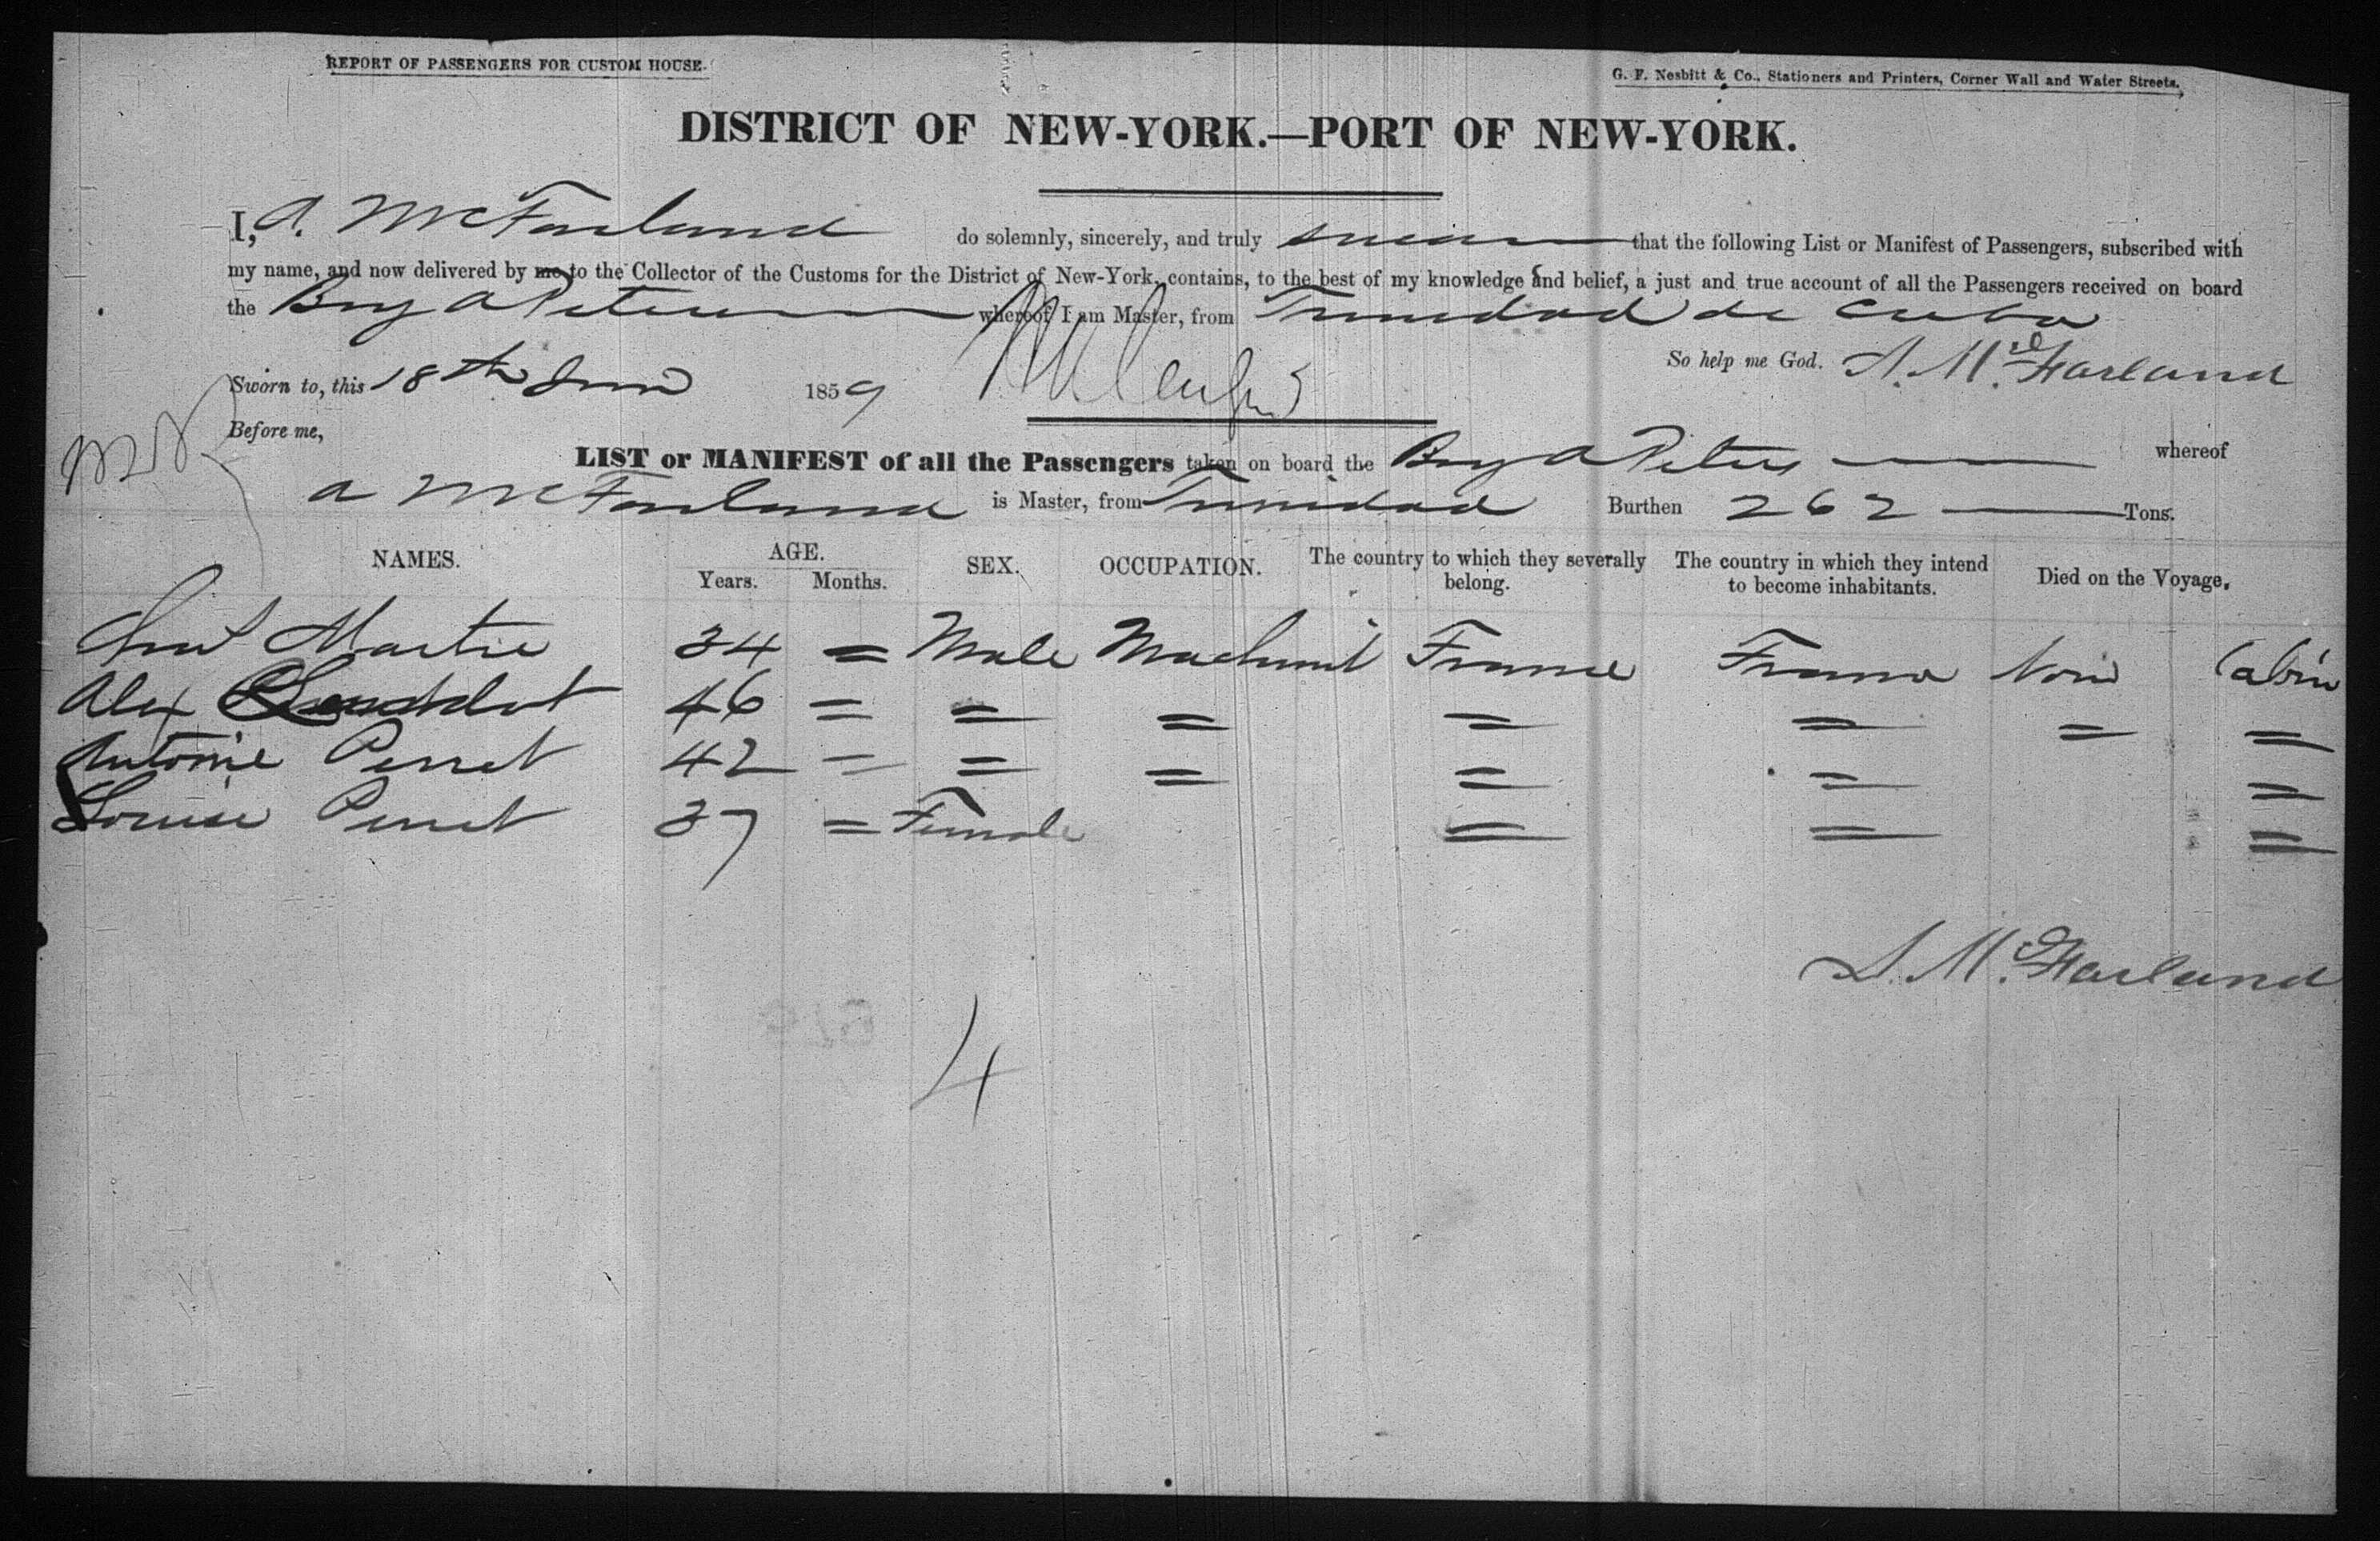 REPORT OF PASSENGERS FOR CUSTOM HOUSE.
G. F. Nesbitt & Co., Stationers and Printers, Corner Wall and Water Streets.
DISTRICT OF NEW-YORK.—PORT OF NEW-YORK.
I, A. McFarland do solemnly, sincerely, and truly swear that the following List or Manifest of Passengers, subscribed with
my name, and now delivered by me to the Collector of the Customs for the District of New-York, contains, to the best of my knowledge and belief, a just and true account of all the Passengers received on board
the Brig A Peters whereof I am Master, from Trinidad de Cuba
So help me God. A. McFarland
Sworn to, this 18th 1859
Before me,
LIST or MANIFEST of all the Passengers taken on board the Brig A Peters whereof
A McFarland is Master, from Trinidad Burthen 262 Tons.
NAMES. AGE. Years. Months. SEX. OCCUPATION. The country to which they severally belong. The country in which they intend to become inhabitants. Died on the Voyage.
Martie 34 = Male France France None Cabin
Alex 46 = = = = = = =
Antoine Perret 42 = = = = = =
Louise Perret 37 = Female = = =
A. McFarland
4